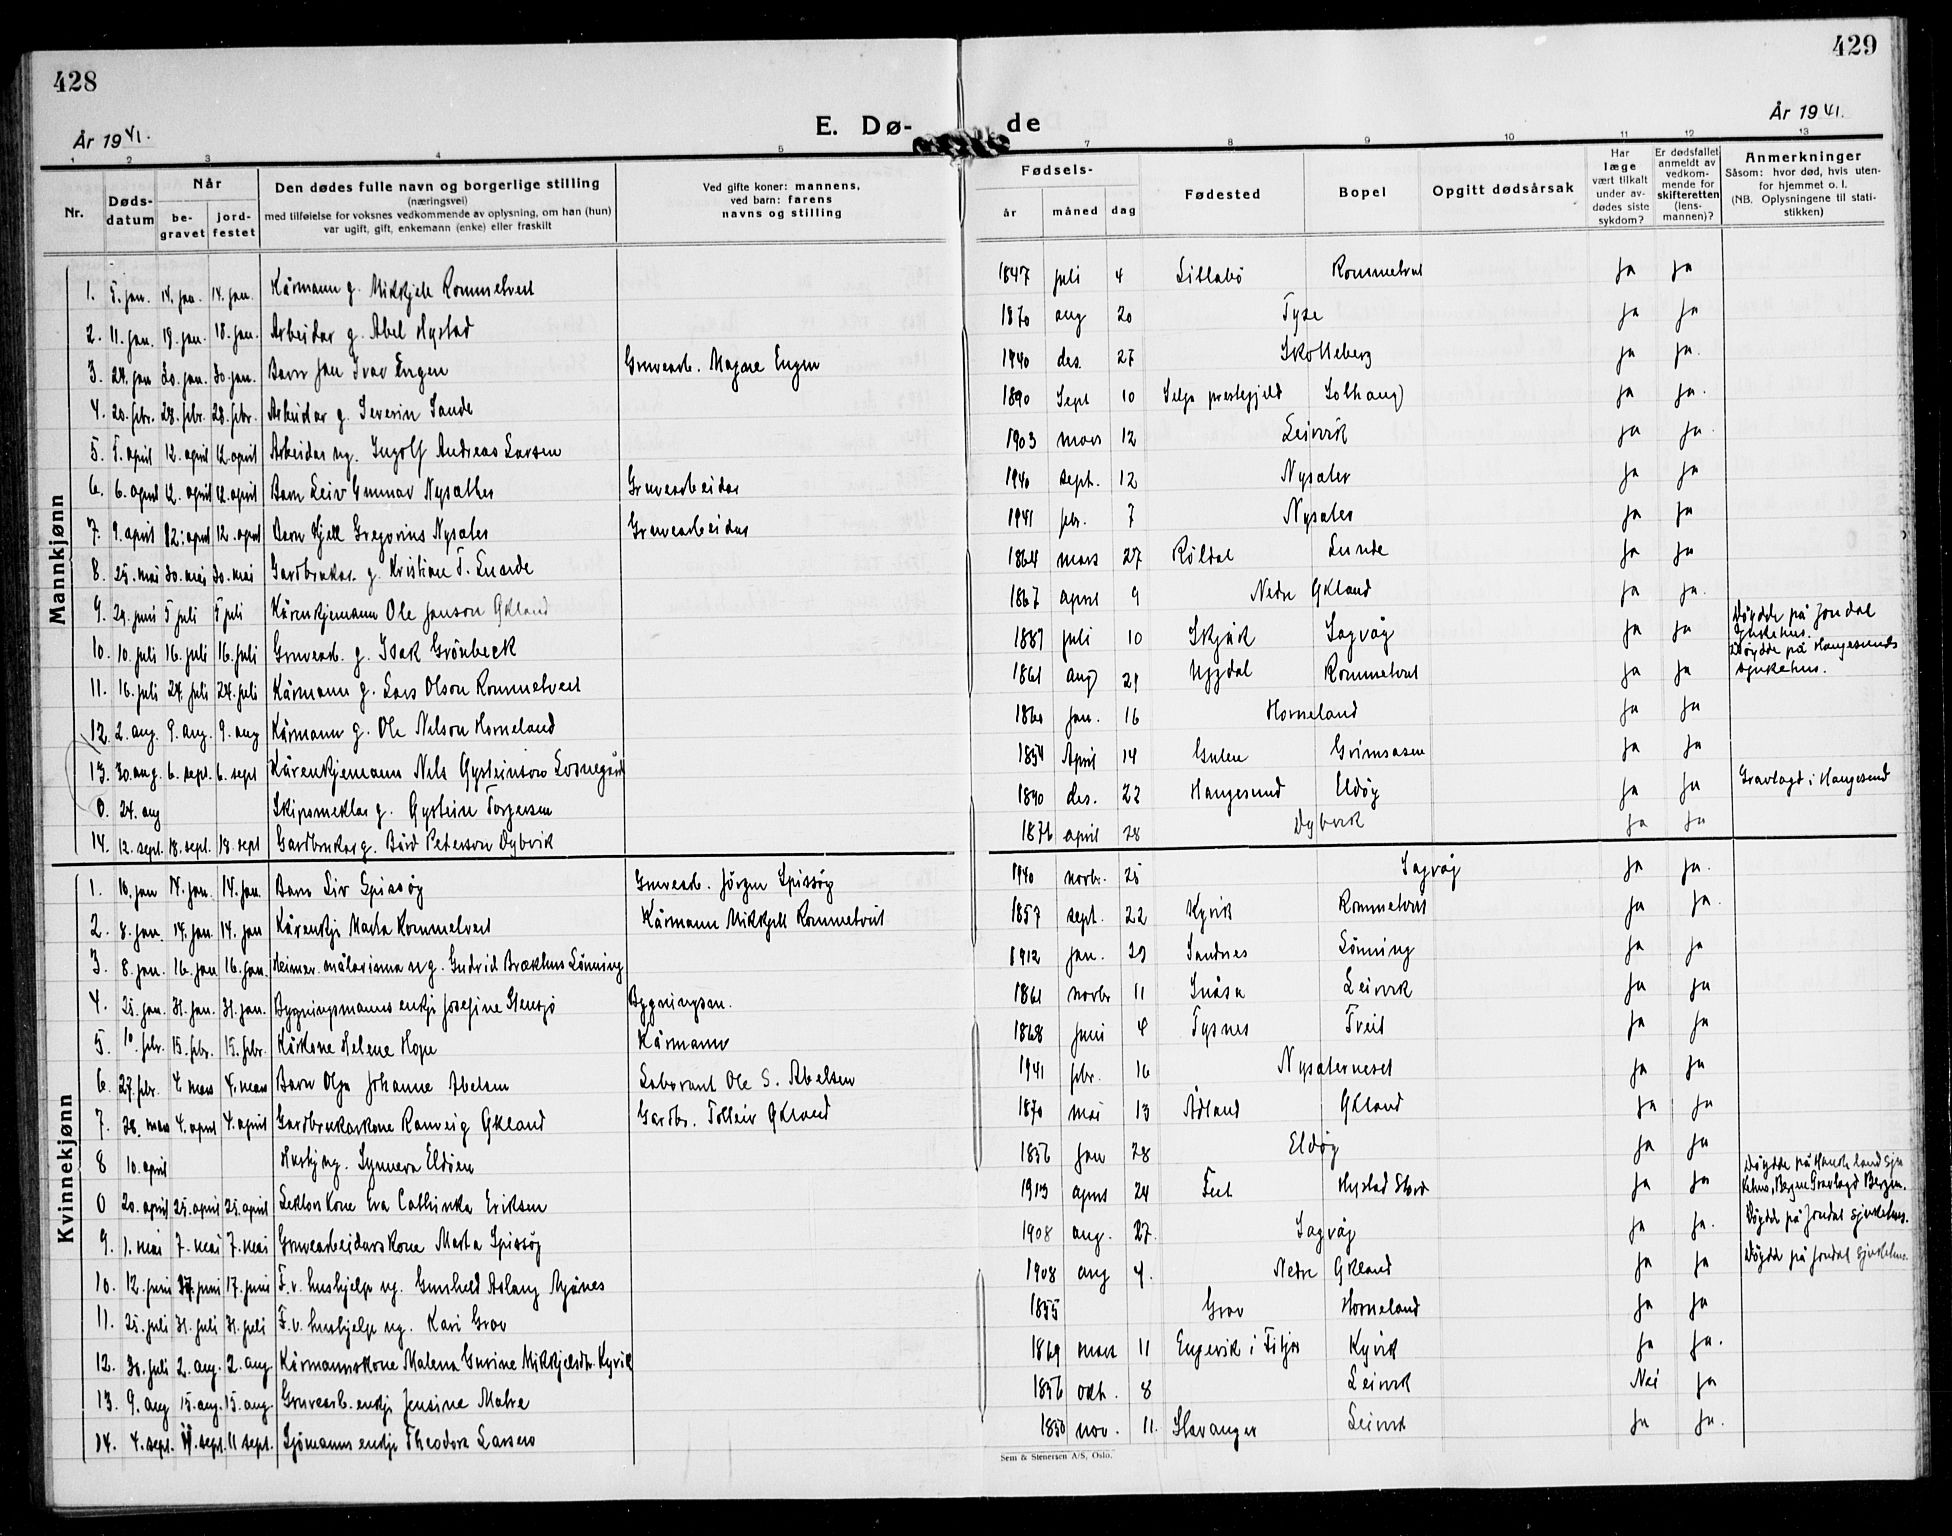 428
429
År 1941.
E. Dø-
de
År 1941.
1 2 3 4 5 7 8 9 10 11 12 13
Nr.
Døds-
datum
Når
be-
gravet
jord-
festet
Den dødes fulle navn og borgerlige stilling
(næringsvei)
med tilføielse for voksnes vedkommende av oplysning, om han (hun)
var ugift, gift, enkemann (enke) eller fraskilt
Ved gifte koner: mannens,
ved barn: farens
navns og stilling
Fødsels-
år
måned
dag
Fødested
Bopel
Opgitt dødsårsak
Har
læge
vært tilkalt
under av-
dødes siste
sykdom?
Er dødsfallet
anmeldt av
vedkom-
mende for
skifteretten
(lens-
mannen)?
Anmerkninger
Såsom: hvor død, hvis uten-
for hjemmet o. l.
(NB. Oplysningene til stati-
stikken)
Mannkjønn
1. 5. jan. 14. jan. 14. jan. Kårmann g. Mikkjell Rommetveit 1847 juli 4 Littlabø Rommetveit Ja Ja
2. 11. jan. 19. jan. 18. jan. Arbeidar g. Abel Hystad 1870 aug 20 Tyse Ja Ja
3. 24. jan 30. jan. 30. jan. Barn Jan Ivar Engen Gruvearb. Magne Engen 1940 des. 27 Skotteberg Ja Ja.
4. 20. febr. 28. febr. 28. febr. Arbeidar g. Severin Sande 1890 Sept 10 Selje prestegjeld Solhaug Ja Ja.
5. 5. april 12. april 12. april Arbeidar ug. Ingolf Andreas Larsen 1903 mars 12 Leirvik Ja Ja.
6. 6. april 12. april 12. april Barn Leiv Gunnar Nysæther Gruvearbeidar 1940 sept. 12 Nysæter Ja Ja
7. 9. april 12. april 12. april Barn Kjell Gregorius Nysæter Gruvearbeidar 1941 febr. 7 Nysæter Ja Ja
8. 25. mai 30. mai 30. mai Gardbrukar g. Kristian T. Lunde 1864 mars 27 Røldal Lunde Ja Ja
9. 29. juni 5 juli 5 juli Kårenkjemann Ole Janson Økland 1867 april 9 Nedre Økland Ja Ja.
10. 10. juli 16. juli 16. juli Gruvearb. g. Isak Grönbeck 1887 juli 10 Skjåk Sagvåg Ja Ja Döydde på Jondal sjukehus.
11. 16. juli 24. juli 24. juli Kårmann g. Lars Olson Rommetveit 1861 aug 29 Uggdal Rommetveit Ja Ja Döydde på Haugesunds sjukehus.
12. 2. aug. 9. aug. 9. aug Kårmann g. Ole Nilson Horneland 1860 jan. 16 Horneland Ja Ja
13. 30. aug. 6. sept. 6. sept Kårenkjemann Nils Øysteinson Losnegård 1854 April 14 Gulen Grimsåsen Ja Ja
0. 24. aug Skipsmeklar g. Øystein Torgersen 1890 des. 22 Haugesund Eldøy Ja Ja Gravlagd i Haugesund
14. 12. sept. 18. sept. 18. sept Gardbrukar g. Bård Peterson Dybvik 1876 april 28 Dybvik Ja Ja
Kvinnekjønn
1. 10. jan 14. jan. 14. jan. Barn Liv Spissøy Gruvearb. Jörgen Spissøy 1940 novbr. 25 Sagvåg Ja Ja.
2. 8. jan. 14. jan. 14. jan Kårenkje Marta Rommetveit Kårmann Mikkjell Rommetveit 1857 sept. 22 Kyvik Rommetveit Ja Ja.
3. 8. jan. 16. jan 16. jan. Heimev. målarinna ug. Gudrid Brækhus Lönning 1912 jan. 29 Sandnes Lönning Ja Ja
4. 25. jan. 31. jan. 31. jan. Bygningsmanns enkje Josefine Stensjø Bygningsm. 1861 novbr 11 Snåsa Leirvik Ja Ja
5. 10. febr. 15. febr. 15. febr. Kårkone Helene Hope Kårmann 1868 juni 4 Tysnes Tveit Ja Ja
6. 27. febr. 4. mars 4. mars Barn Olga Johanne Abelsen Laborant Ole S. Abelsen 1941 febr. 16 Nysæterneset Ja Ja
7. 28. mars 4. april 4. april Gardbrukarkone Ranveig Økland Gardbr. Tolleiv Økland 1870 mai 13 Ådland Økland Ja Ja
8 10. april Husbj ug. Synneva Eldøen 1856 Jan 28 Eldøy Ja Ja
0 20. april 25. april 25. april Lektor Kone Eva Cathinka Eriksen 1913 april 24 Hystad Stord Ja Ja Döydde på Haukeland sjukehus, Bergen Gravlagd Bergen.
9. 1. mai 7. mai 7. mai Gruvearbeidarskone Marta Spissøy 1908 aug. 27. Sagvåg Ja Ja. Döydde på Jondal sjukehus.
10. 12. juni 17. juni 17. juni F.v. hushjelp ug. Gunhild Aslaug Nyånes 1908 aug 4. Nedre Økland Ja Ja Döydde på Jondal sjukehus
11. 25. juli 31. juli 31. juli F.v. hushjelp ug. Kari Grov 1855 Grov Horneland Ja Ja
12. 30. juli 2. aug. 2. aug. Kårmannskone Malena Gurine Mikkjelsdtr. Kyvik 1869 mars 11 Engevik i Fitjar Kyvik Ja Ja.
13. 9. aug 15. aug. 15. aug. Gruvearb. enkje Jensine Matre 1856 okt. 8 Leirvik Nei Ja
14. 4. sept. 11. sept. 11 sept. Sjömanns enkje Theodora Larsen 1850 nov. 11. Stavanger Leirvik Ja Ja.
Sem & Stenersen A/S, Oslo.